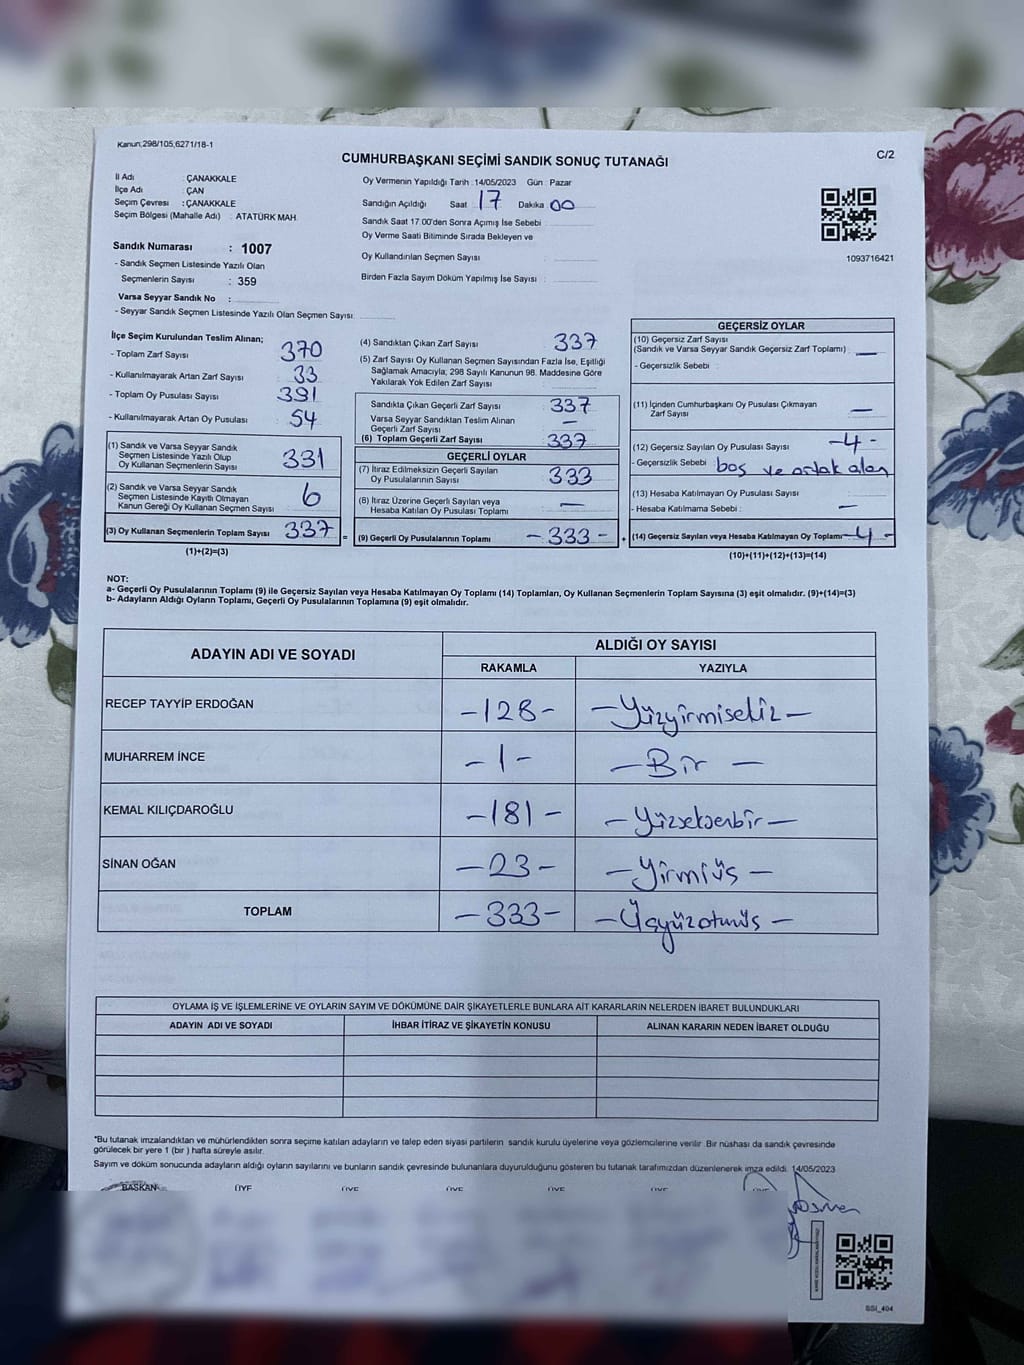 Kanun;298/105,6271/18-1
CUMHURBAŞKANI SEÇİMİ SANDIK SONUÇ TUTANAĞI
C/2
İl Adı : ÇANAKKALE
İlçe Adı : ÇAN
Seçim Çevresi : ÇANAKKALE
Seçim Bölgesi (Mahalle Adı) : ATATÜRK MAH.
Sandık Numarası : 1007
- Sandık Seçmen Listesinde Yazılı Olan
Seçmenlerin Sayısı : 359
Varsa Seyyar Sandık No :
- Seyyar Sandık Seçmen Listesinde Yazılı Olan Seçmen Sayısı
Oy Vermenin Yapıldığı Tarih :14/05/2023 Gün : Pazar
Sandığın Açıldığı Saat 17 Dakika 00
Sandık Saat 17.00'den Sonra Açılmış İse Sebebi
Oy Verme Saati Bitiminde Sırada Bekleyen ve
Oy Kullandırılan Seçmen Sayısı :
Birden Fazla Sayım Döküm Yapılmış İse Sayısı :
1093716421
İlçe Seçim Kurulundan Teslim Alınan;
- Toplam Zarf Sayısı 370
- Kullanılmayarak Artan Zarf Sayısı 33
- Toplam Oy Pusulası Sayısı 391
- Kullanılmayarak Artan Oy Pusulası 54
(1) Sandık ve Varsa Seyyar Sandık
Seçmen Listesinde Yazılı Olup
Oy Kullanan Seçmenlerin Sayısı 331
(2) Sandık ve Varsa Seyyar Sandık
Seçmen Listesinde Kayıtlı Olmayan
Kanun Gereği Oy Kullanan Seçmen Sayısı 6
(3) Oy Kullanan Seçmenlerin Toplam Sayısı 337
(1)+(2)=(3)
(4) Sandıktan Çıkan Zarf Sayısı 337
(5) Zarf Sayısı Oy Kullanan Seçmen Sayısından Fazla İse, Eşitliği
Sağlamak Amacıyla, 298 Sayılı Kanunun 98. Maddesine Göre
Yakılarak Yok Edilen Zarf Sayısı
Sandıkta Çıkan Geçerli Zarf Sayısı 337
Varsa Seyyar Sandıktan Teslim Alınan
Geçerli Zarf Sayısı —
(6) Toplam Geçerli Zarf Sayısı 337
GEÇERLİ OYLAR
(7) İtiraz Edilmeksizin Geçerli Sayılan
Oy Pusulalarının Sayısı 333
(8) İtiraz Üzerine Geçerli Sayılan veya
Hesaba Katılan Oy Pusulası Toplamı —
= (9) Geçerli Oy Pusulalarının Toplamı -333-
GEÇERSİZ OYLAR
(10) Geçersiz Zarf Sayısı
(Sandık ve Varsa Seyyar Sandık Geçersiz Zarf Toplamı) : —
- Geçersizlik Sebebi :
(11) İçinden Cumhurbaşkanı Oy Pusulası Çıkmayan
Zarf Sayısı —
(12) Geçersiz Sayılan Oy Pusulası Sayısı -4-
- Geçersizlik Sebebi boş ve ortak alan
(13) Hesaba Katılmayan Oy Pusulası Sayısı
- Hesaba Katılmama Sebebi : —
+ (14) Geçersiz Sayılan veya Hesaba Katılmayan Oy Toplamı -4-
(10)+(11)+(12)+(13)=(14)
NOT:
a- Geçerli Oy Pusulalarının Toplamı (9) ile Geçersiz Sayılan veya Hesaba Katılmayan Oy Toplamı (14) Toplamları, Oy Kullanan Seçmenlerin Toplam Sayısına (3) eşit olmalıdır. (9)+(14)=(3)
b- Adayların Aldığı Oyların Toplamı, Geçerli Oy Pusulalarının Toplamına (9) eşit olmalıdır.
ADAYIN ADI VE SOYADI ALDIĞI OY SAYISI
RAKAMLA YAZIYLA
RECEP TAYYİP ERDOĞAN -128- -Yüzyirmisekiz-
MUHARREM İNCE -1- -Bir-
KEMAL KILIÇDAROĞLU -181- -Yüzseksenbir-
SİNAN OĞAN -23- -Yirmiüç-
TOPLAM -333- -Üçyüzotuzüç-
OYLAMA İŞ VE İŞLEMLERİNE VE OYLARIN SAYIM VE DÖKÜMÜNE DAİR ŞİKAYETLERLE BUNLARA AİT KARARLARIN NELERDEN İBARET BULUNDUKLARI
ADAYIN ADI VE SOYADI İHBAR İTİRAZ VE ŞİKAYETİN KONUSU ALINAN KARARIN NEDEN İBARET OLDUĞU
"Bu tutanak imzalandıktan ve mühürlendikten sonra seçime katılan adayların ve talep eden siyasi partilerin sandık kurulu üyelerine veya gözlemcilerine verilir. Bir nüshası da sandık çevresinde
görülecek bir yere 1 (bir) hafta süreyle asılır.
Sayım ve döküm sonucunda adayların aldığı oyların sayılarını ve bunların sandık çevresinde bulunanlara duyurulduğunu gösteren bu tutanak tarafımızdan düzenlenerek imza edildi. 14/05/2023
BAŞKAN ÜYE ÜYE ÜYE ÜYE ÜYE ÜYE
SSI_404